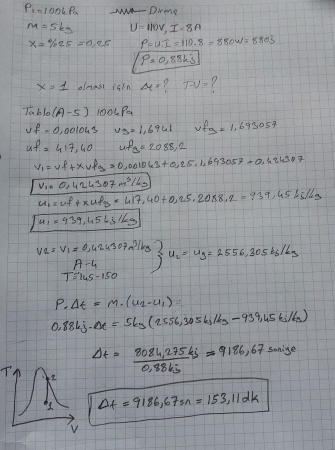 P₁=100kPa
m=5kg
x=%25=0,25
Direnç
U=110V, I=8A
P=U.I=110.8=880W=880J
P=0,88kj
x=1 olması için Δt=? T-V=?
Tablo(A-5) 100kPa
vf=0,001043 vg=1,6941 vfg=1,693057
uf=417,40 ufg=2088,2
v₁=vf+xvfg=0,001043+0,25.1,693057=0,424307
v₁=0,424307m³/kg
u₁=uf+xufg=417,40+0,25.2088,2=939,45kj/kg
u₁=939,45kj/kg
v₂=v₁=0,424307m³/kg
A-4
T=145-150
u₂=ug=2556,305kj/kg
P.Δt = m.(u₂-u₁)=
0,88kj.Δt = 5kg(2556,305kj/kg-939,45kj/kg)
Δt = 8084,275kj/0,88kj = 9186,67 saniye
Δt=9186,67sn=153,11dk
T
2
1
V